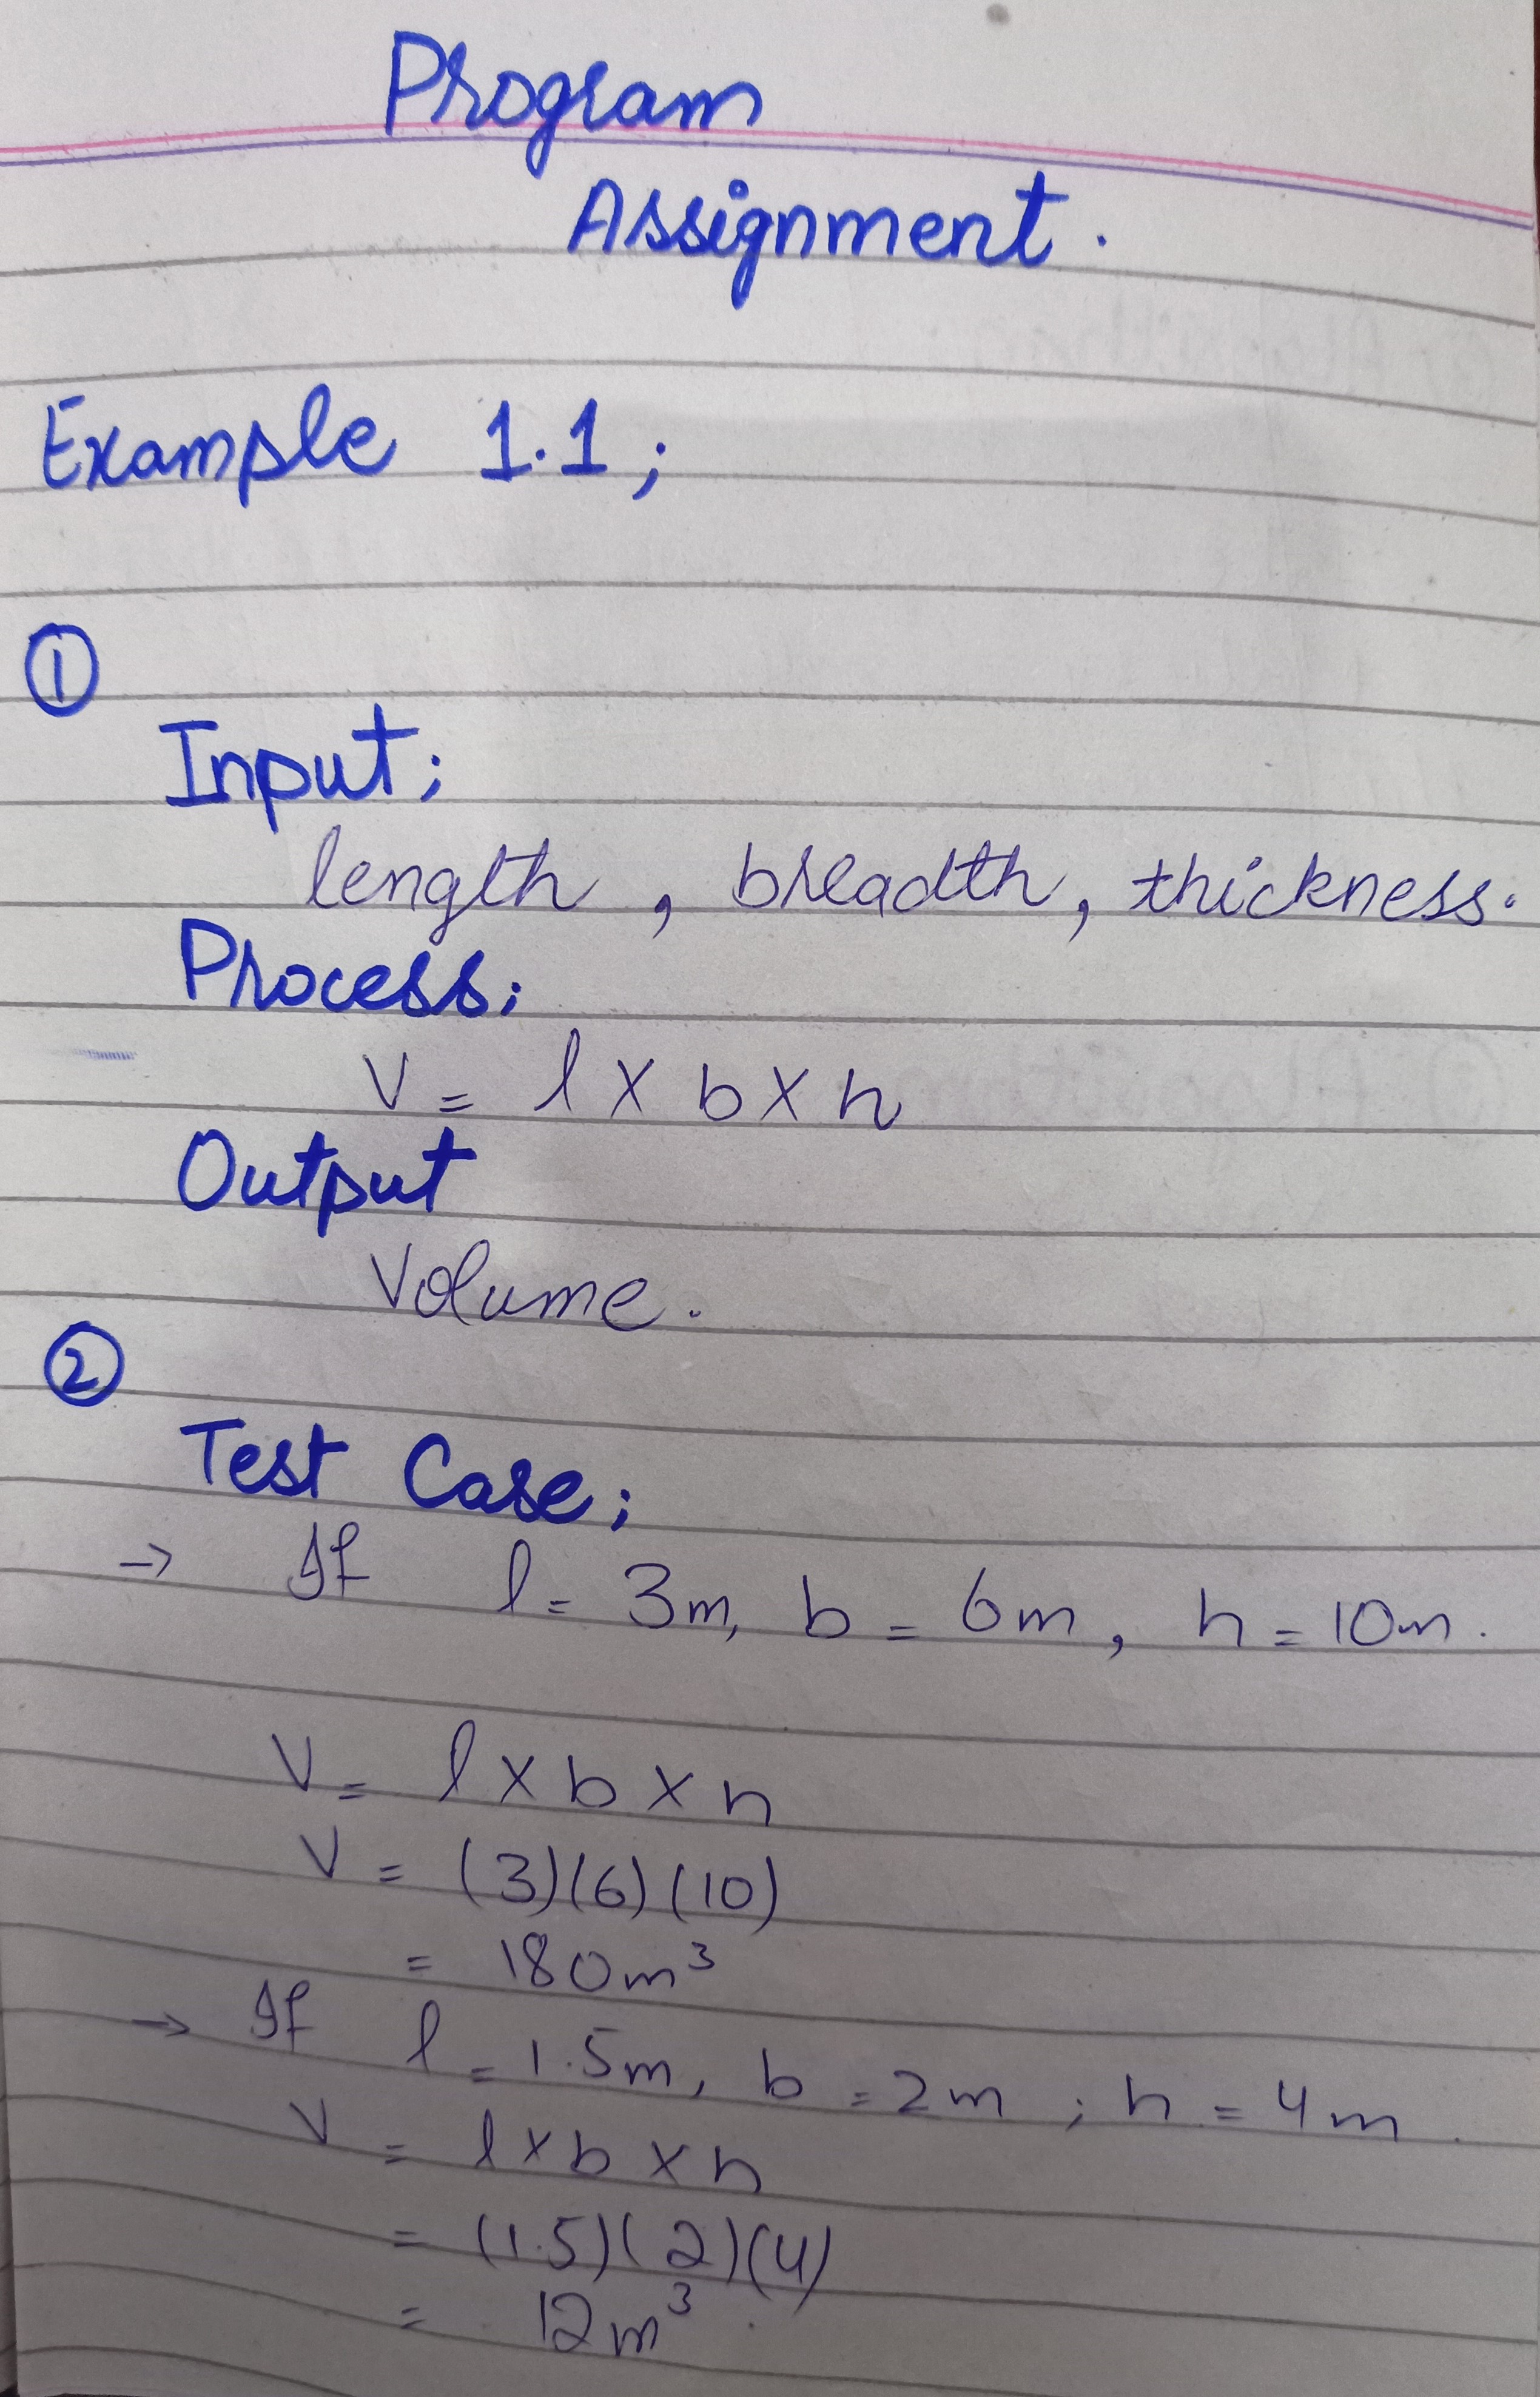 Program
Assignment.
Example 1.1;
①
Input;
length, breadth, thickness.
Process;
V = l × b × h
Output
Volume.
②
Test Case;
→ If l = 3m, b = 6m, h = 10m.
V = l × b × h
V = (3)(6)(10)
= 180m³
→ If l = 1.5m, b = 2m ; h = 4m.
V = l × b × h
= (1.5)(2)(4)
= 12m³.